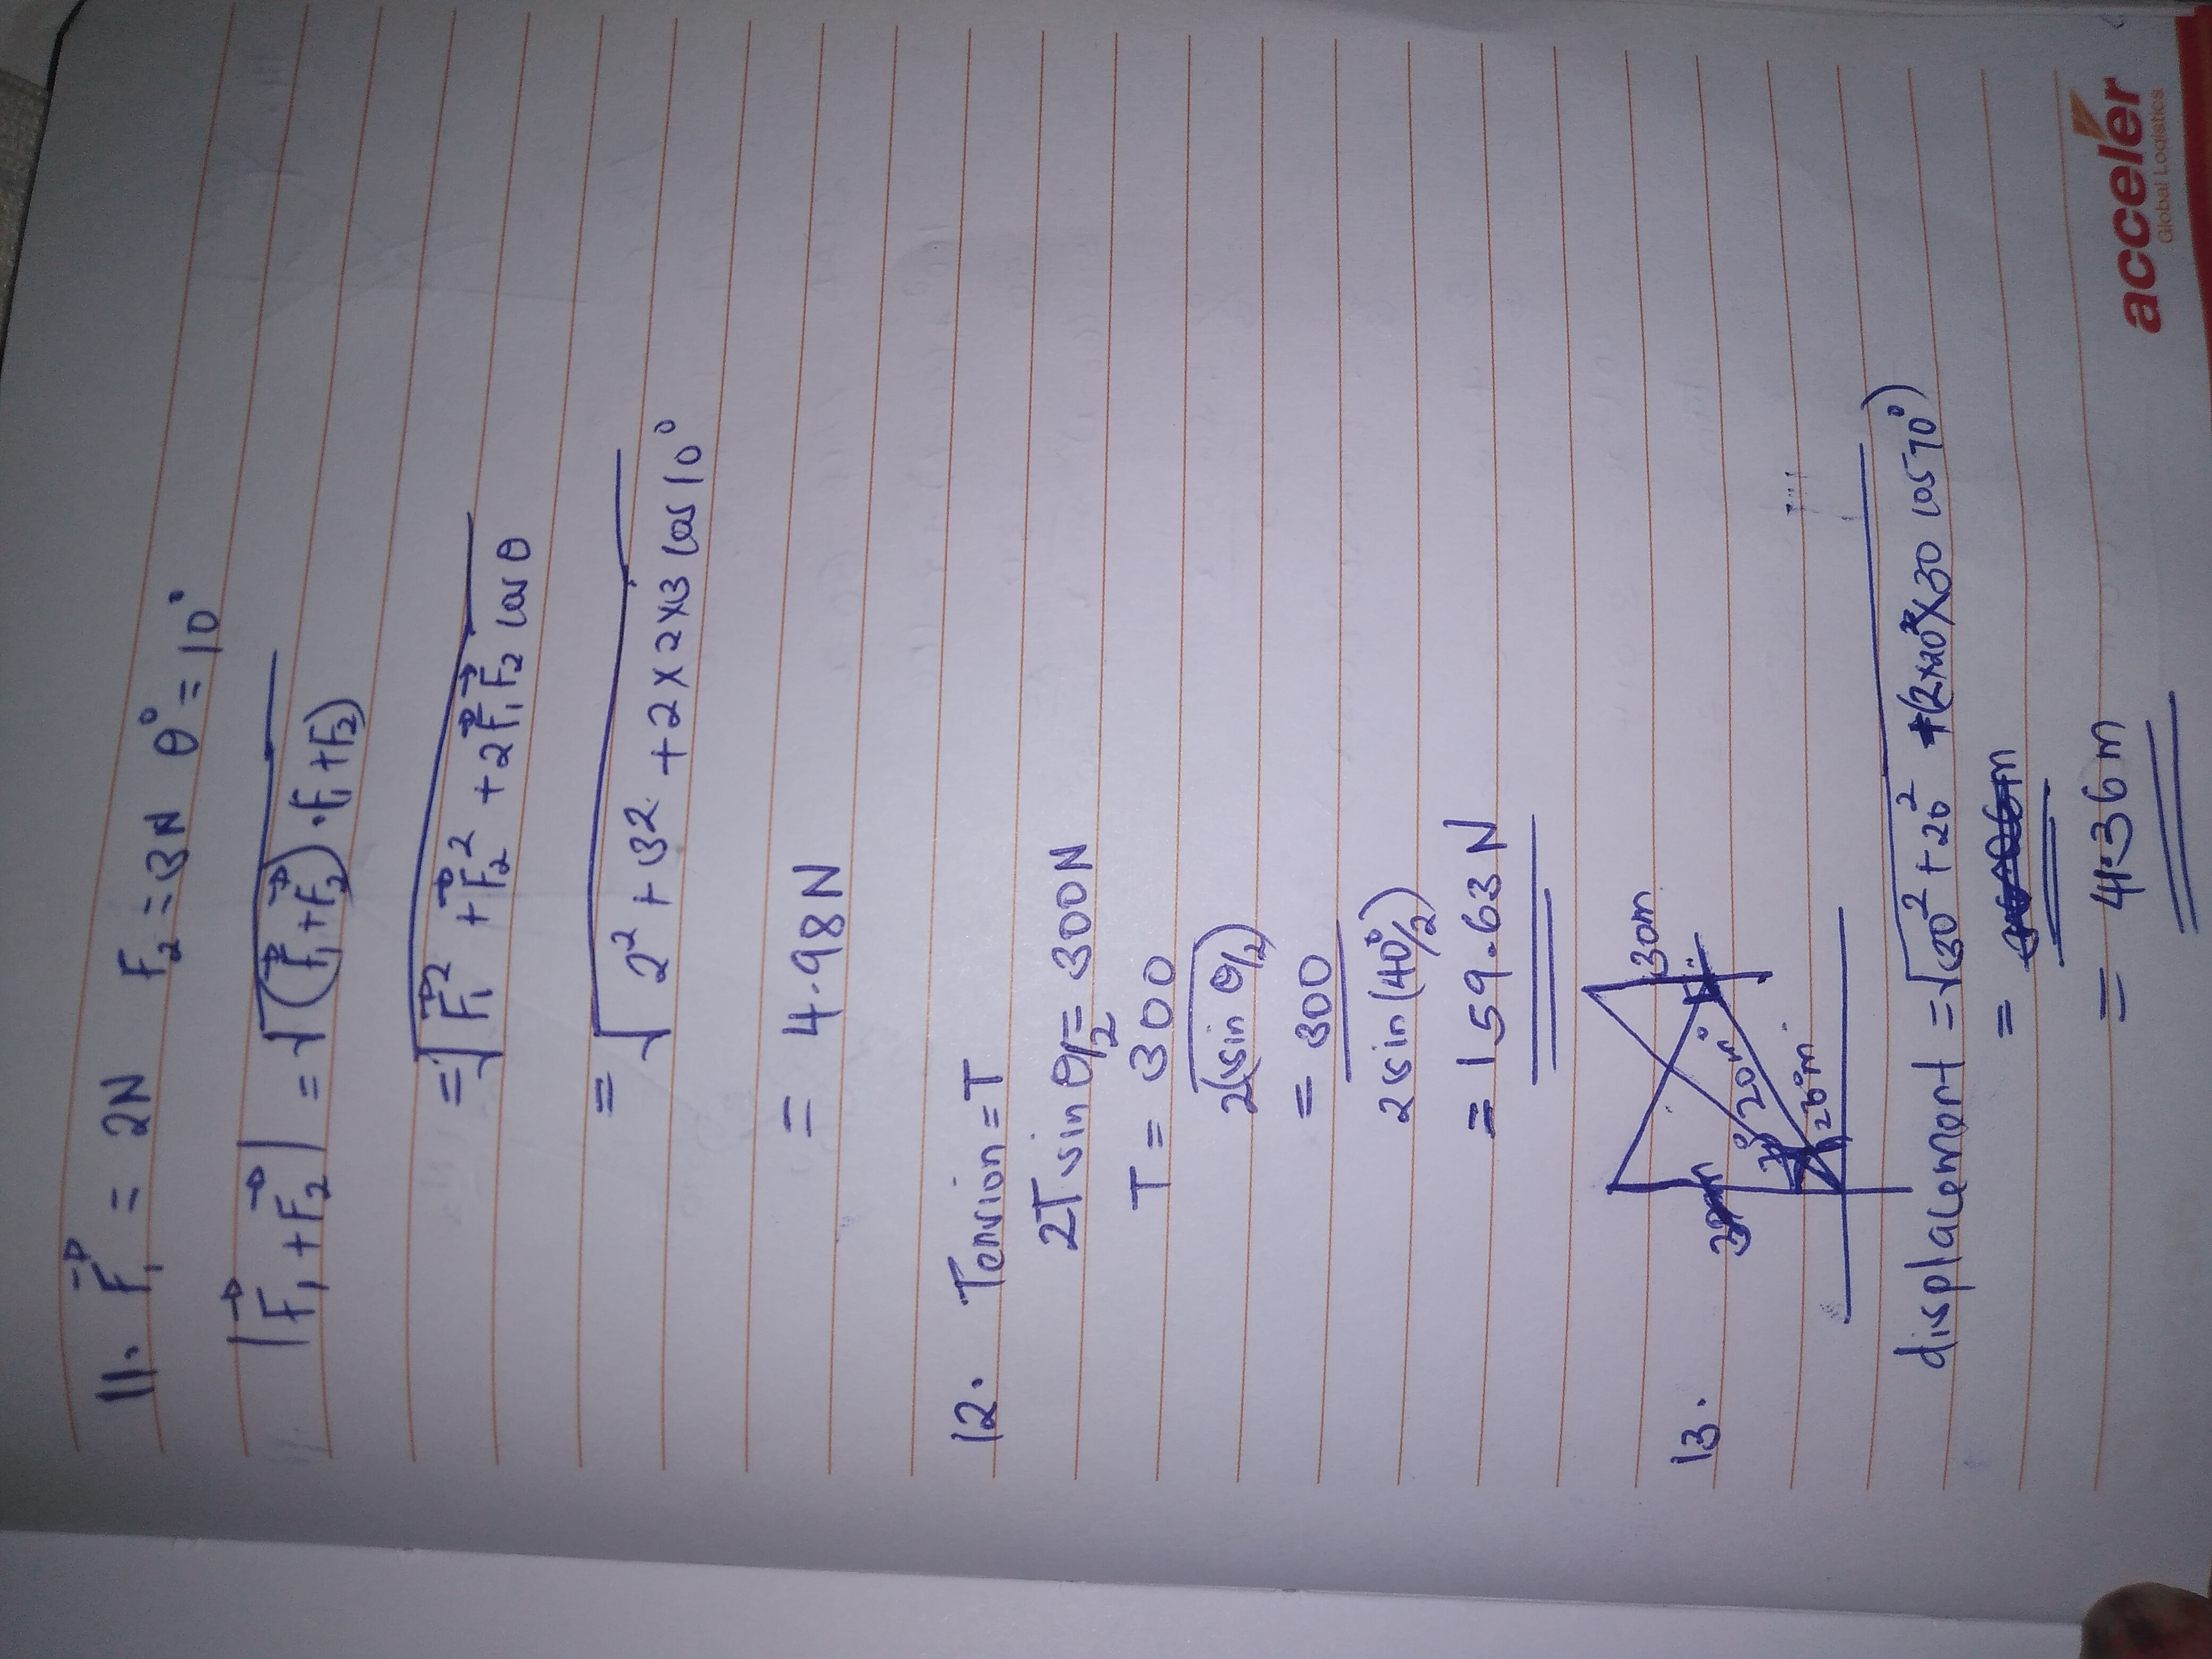 11. F₁ = 2N F₂ = 3N θ° = 10°
|F₁ + F₂| = √(F₁+F₂)·(F₁+F₂)
= √F₁² + F₂² + 2F₁F₂ cos θ
= √2² + 3² + 2 × 2 × 3 cos 10°
= 4.98N
12. Tension = T
2T sin θ/2 = 300N
T = 300
2(sin θ/2)
= 300
2 sin (40°/2)
= 159.63 N
13.
30m
20m
20°
displacement = √30² + 20² + (2×20×30 cos 70°)
=
= 41.36 m
acceler
Global Logistics